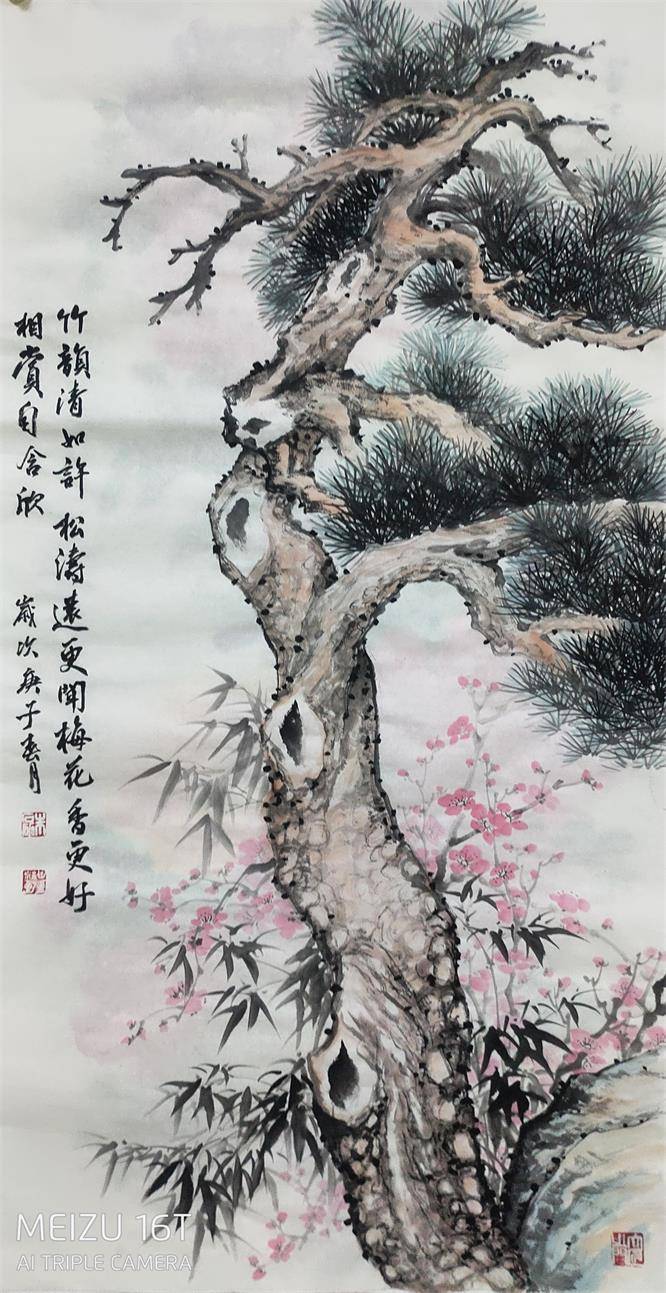 竹韻清如許松濤遠更聞梅花香更好
相賞自含欣
歲次庚子春月
MEIZU 16T
AI TRIPLE CAMERA